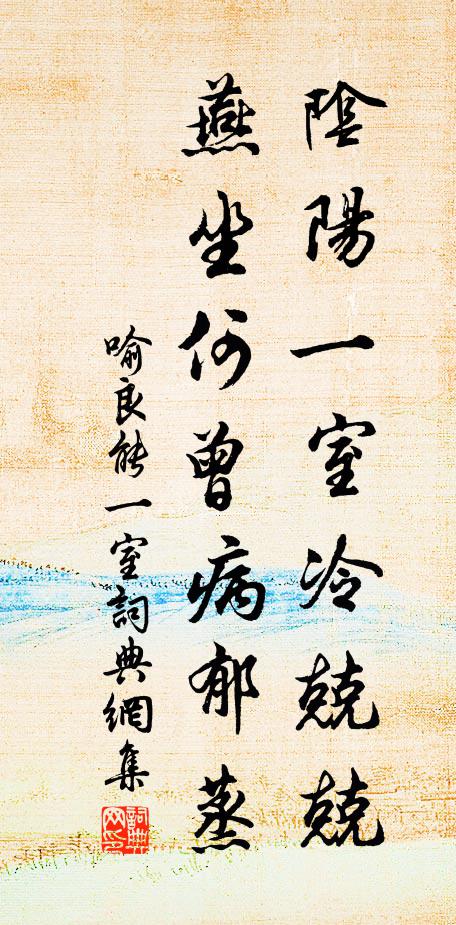 陰陽一室冷兢兢
燕坐何曾病郁蒸
喻良能一室詞典網集
詞典網印